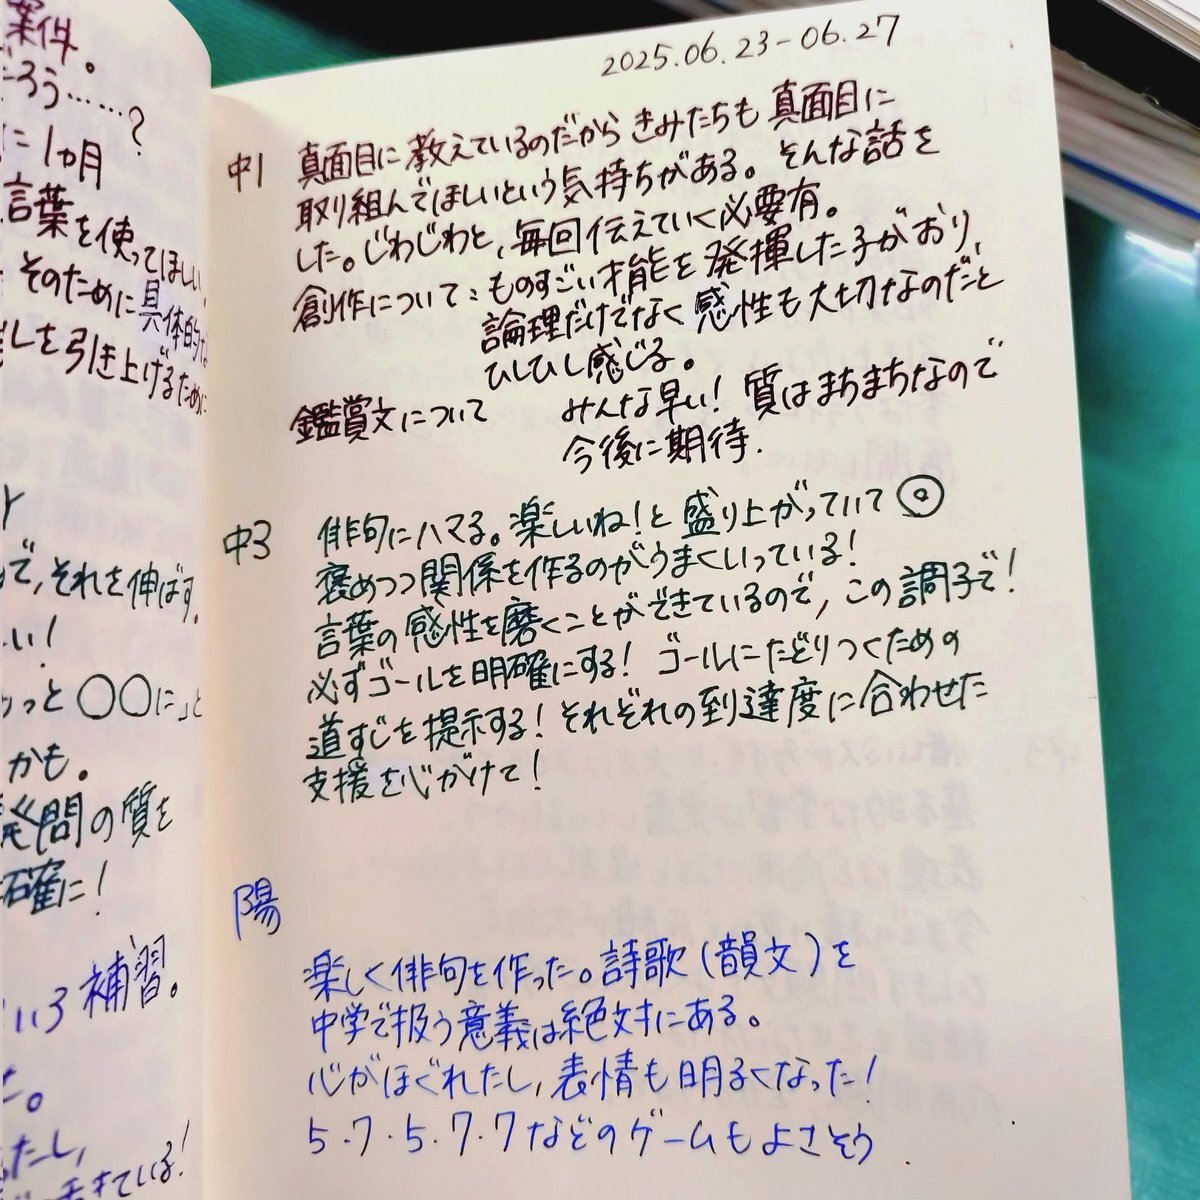 案件。
ろう……?
に1ヵ月
言葉を使ってほしい、
そのために具体的な
しを引き上げるために
で、それを伸ばす。
い!
っと〇〇に」と
かも。
発問の質を
確に!
いろ補習。
た。
たし、
きている!
2025.06.23-06.27
中1 真面目に教えているのだからきみたちも真面目に
取り組んでほしいという気持ちがある。そんな話を
した。じわじわと、毎回伝えていく必要有。
創作について:ものすごい才能を発揮した子がおり、
論理だけでなく感性も大切なのだと
ひしひし感じる。
鑑賞文について みんな早い!質はまちまちなので
今後に期待.
中3 俳句にハマる。楽しいね!と盛り上がっていて◎
褒めつつ関係を作るのがうまくいっている!
言葉の感性を磨くことができているので、この調子で!
必ずゴールを明確にする!ゴールにたどりつくための
道すじを提示する!それぞれの到達度に合わせた
支援を心がけて!
陽
楽しく俳句を作った。詩歌(韻文)を
中学で扱う意義は絶対にある。
心がほぐれたし、表情も明るくなった!
5・7・5・7・7などのゲームもよさそう